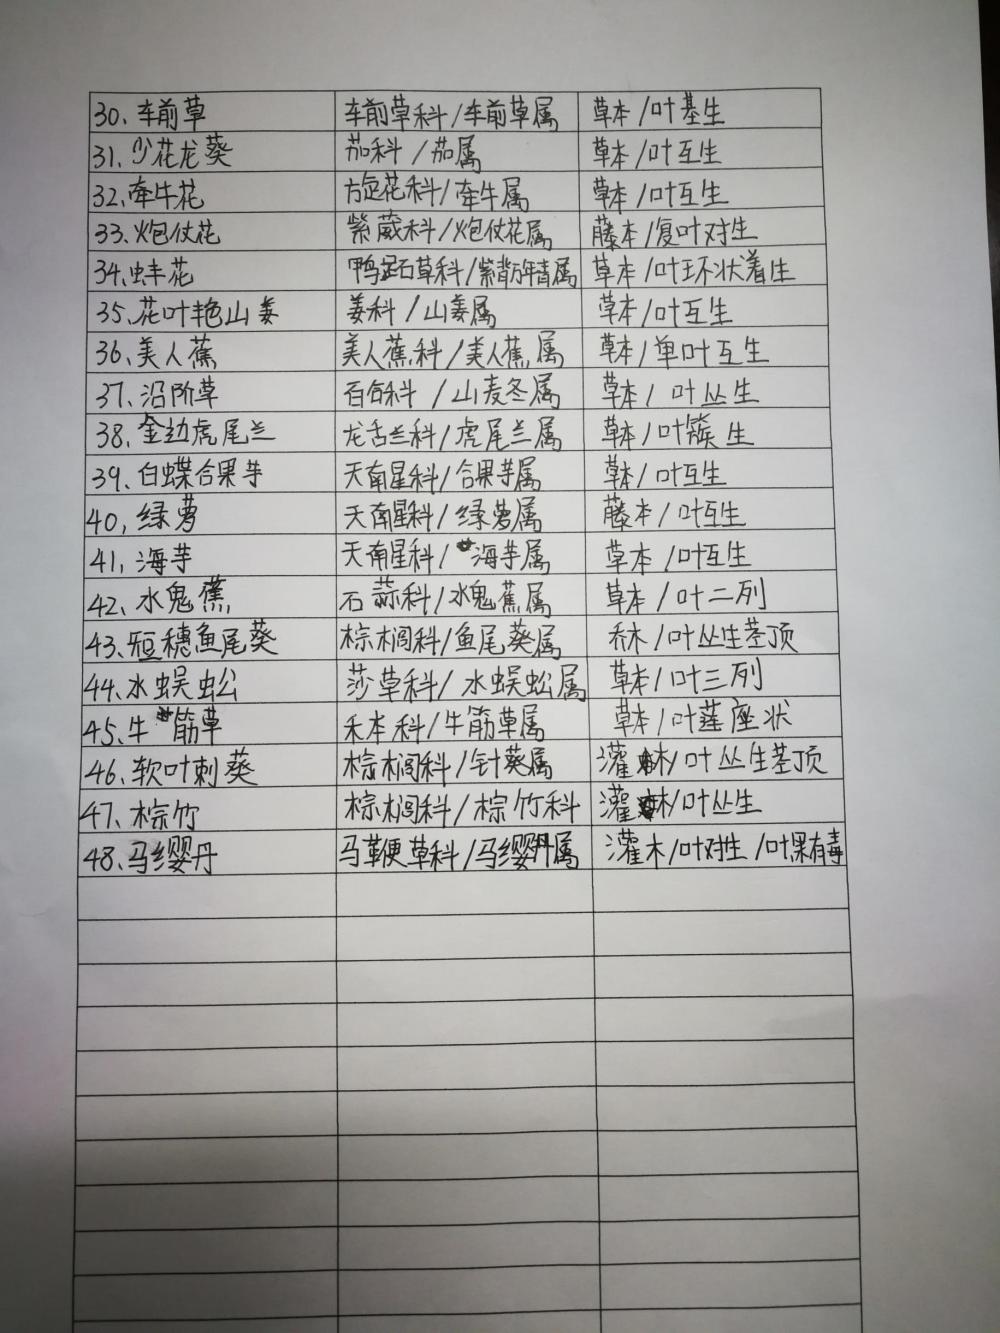 30、车前草 车前草科/车前草属 草本/叶基生
31、少花龙葵 茄科/茄属 草本/叶互生
32、牵牛花 旋花科/牵牛属 草本/叶互生
33、炮仗花 紫葳科/炮仗花属 藤本/复叶对生
34、蚌花 鸭跖石草科/紫背万年青属 草本/叶环状着生
35、花叶艳山姜 姜科/山姜属 草本/叶互生
36、美人蕉 美人蕉科/美人蕉属 草本/单叶互生
37、沿阶草 百合科/山麦冬属 草本/叶丛生
38、金边虎尾兰 龙舌兰科/虎尾兰属 草本/叶簇生
39、白蝶合果芋 天南星科/合果芋属 草本/叶互生
40,绿萝 天南星科/绿萝属 藤本/叶互生
41,海芋 天南星科/海芋属 草本/叶互生
42、水鬼蕉 石蒜科/水鬼蕉属 草本/叶二列
43、短穗鱼尾葵 棕榈科/鱼尾葵属 乔木/叶丛生茎顶
44、水蜈蚣 莎草科/水蜈蚣属 草本/叶三列
45、牛筋草 禾本科/牛筋草属 草本/叶莲座状
46、软叶刺葵 棕榈科/针葵属 灌木/叶丛生茎顶
47、棕竹 棕榈科/棕竹科 灌木/叶丛生
48、马缨丹 马鞭草科/马缨丹属 灌木/叶对生/叶果有毒